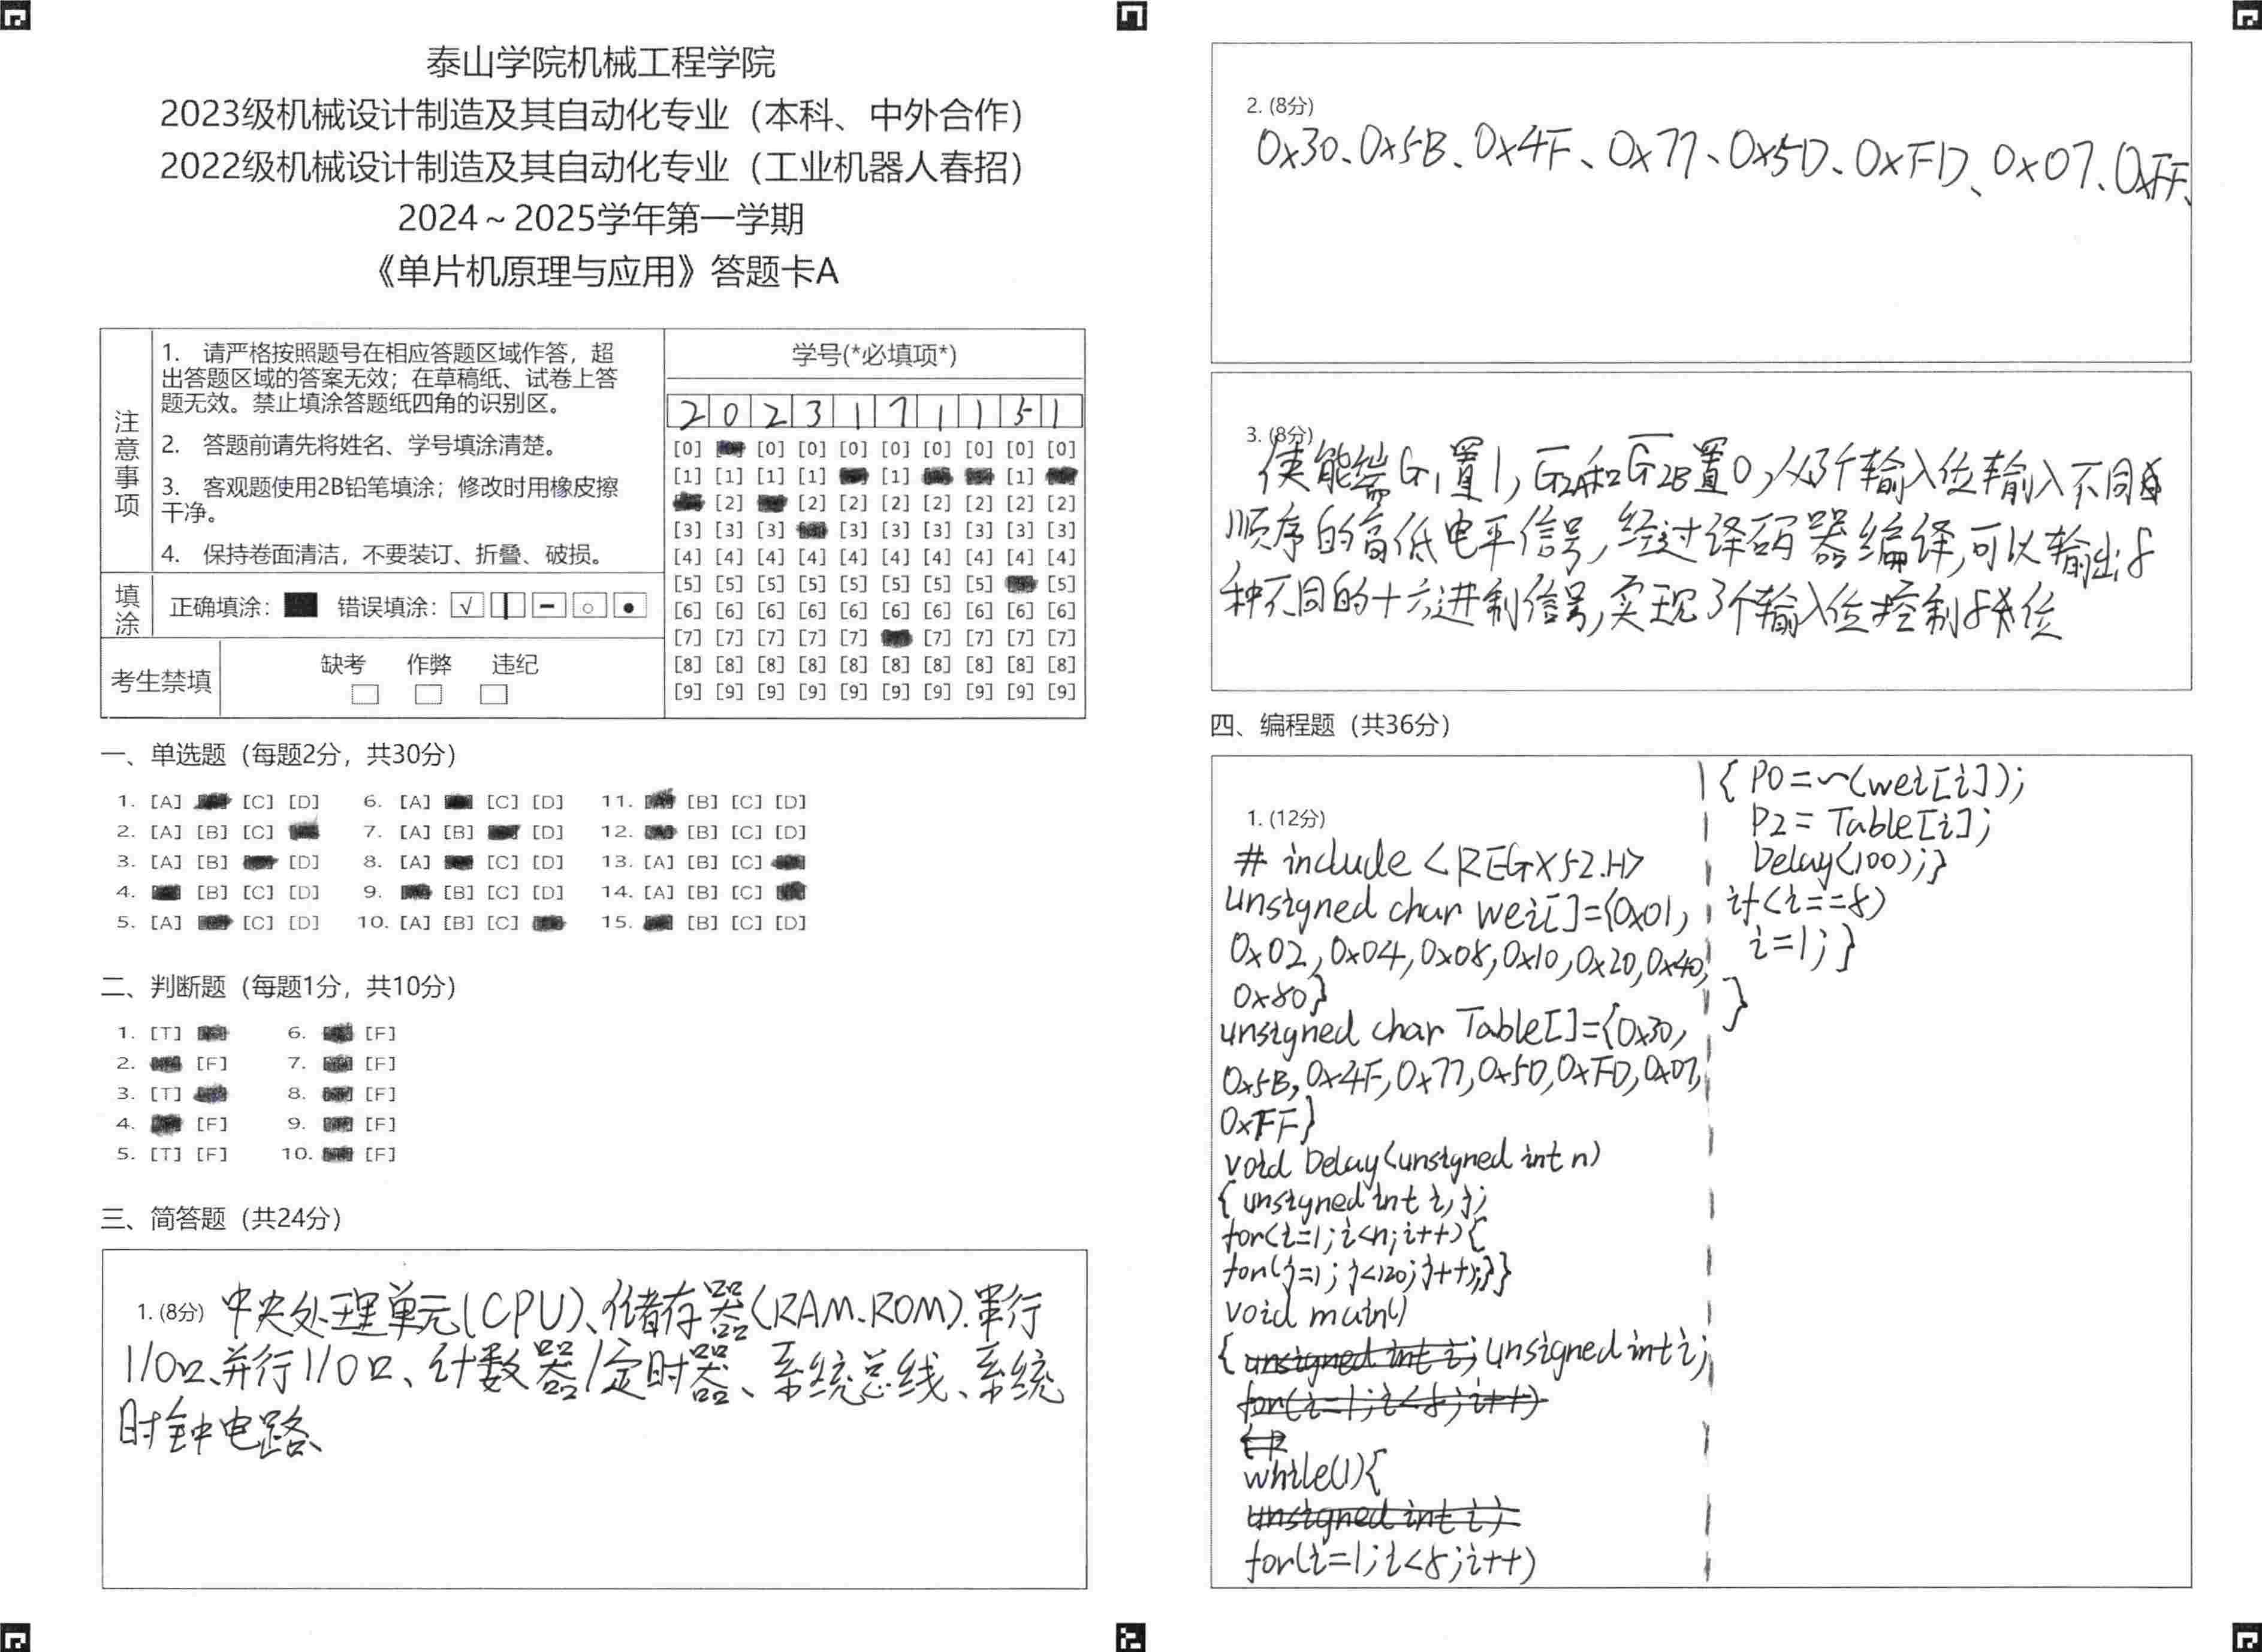 泰山学院机械工程学院
2023级机械设计制造及其自动化专业（本科、中外合作）
2022级机械设计制造及其自动化专业（工业机器人春招）
2024～2025学年第一学期
《单片机原理与应用》答题卡A
注意事项
1. 请严格按照题号在相应答题区域作答，超
出答题区域的答案无效；在草稿纸、试卷上答
题无效。禁止填涂答题纸四角的识别区。
2. 答题前请先将姓名、学号填涂清楚。
3. 客观题使用2B铅笔填涂；修改时用橡皮擦
干净。
4. 保持卷面清洁，不要装订、折叠、破损。
填涂
正确填涂： 错误填涂：
考生禁填
缺考 作弊 违纪
学号(*必填项*)
2 0 2 3 1 7 1 1 5 1
[0] [0] [0] [0] [0] [0] [0] [0] [0]
[1] [1] [1] [1] [1] [1]
[2] [2] [2] [2] [2] [2] [2] [2]
[3] [3] [3] [3] [3] [3] [3] [3] [3]
[4] [4] [4] [4] [4] [4] [4] [4] [4] [4]
[5] [5] [5] [5] [5] [5] [5] [5] [5]
[6] [6] [6] [6] [6] [6] [6] [6] [6] [6]
[7] [7] [7] [7] [7] [7] [7] [7] [7]
[8] [8] [8] [8] [8] [8] [8] [8] [8] [8]
[9] [9] [9] [9] [9] [9] [9] [9] [9] [9]
一、单选题（每题2分，共30分）
1. [A] [C] [D] 6. [A] [C] [D] 11. [B] [C] [D]
2. [A] [B] [C] 7. [A] [B] [D] 12. [B] [C] [D]
3. [A] [B] [D] 8. [A] [C] [D] 13. [A] [B] [C]
4. [B] [C] [D] 9. [B] [C] [D] 14. [A] [B] [C]
5. [A] [C] [D] 10. [A] [B] [C] 15. [B] [C] [D]
二、判断题（每题1分，共10分）
1. [T] 6. [F]
2. [F] 7. [F]
3. [T] 8. [F]
4. [F] 9. [F]
5. [T] [F] 10. [F]
三、简答题（共24分）
1. (8分) 中央处理单元(CPU)、储存器(RAM.ROM).串行
I/O口、并行I/O口、计数器/定时器、系统总线、系统
时钟电路、
2. (8分)
0x30、0x5B、0x4F、0x77、0x5D、0xFD、0x07、0xFF、
3. (8分)
使能端G1置1,G2A和G2B置0,从3个输入位输入不同
顺序的高低电平信号,经过译码器编译,可以输出8
种不同的十六进制信号,实现3个输入位控制8位
四、编程题（共36分）
1. (12分)
# include <REGX52.H>
unsigned char wei[]={0x01,
0x02,0x04,0x08,0x10,0x20,0x40,
0x80}
unsigned char Table[]={0x30,
0x5B,0x4F,0x77,0x5D,0xFD,0x07,
0xFF}
void Delay(unsigned int n)
{ unsigned int i,j;
for(i=1;i<n;i++){
for(j=1;j<120;j++);}}
void main()
{ unsigned int i; unsigned int i;
for(i=1;i<8;i++)
while(1){
unsigned int i;
for(i=1;i<8;i++)
{ P0=~(wei[i]);
P2= Table[i];
Delay(100);}
if(i==8)
i=1;}
}